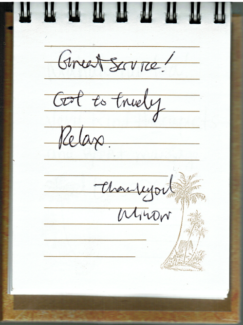 Great Service!
Got to truely
Relax.
Thankyou